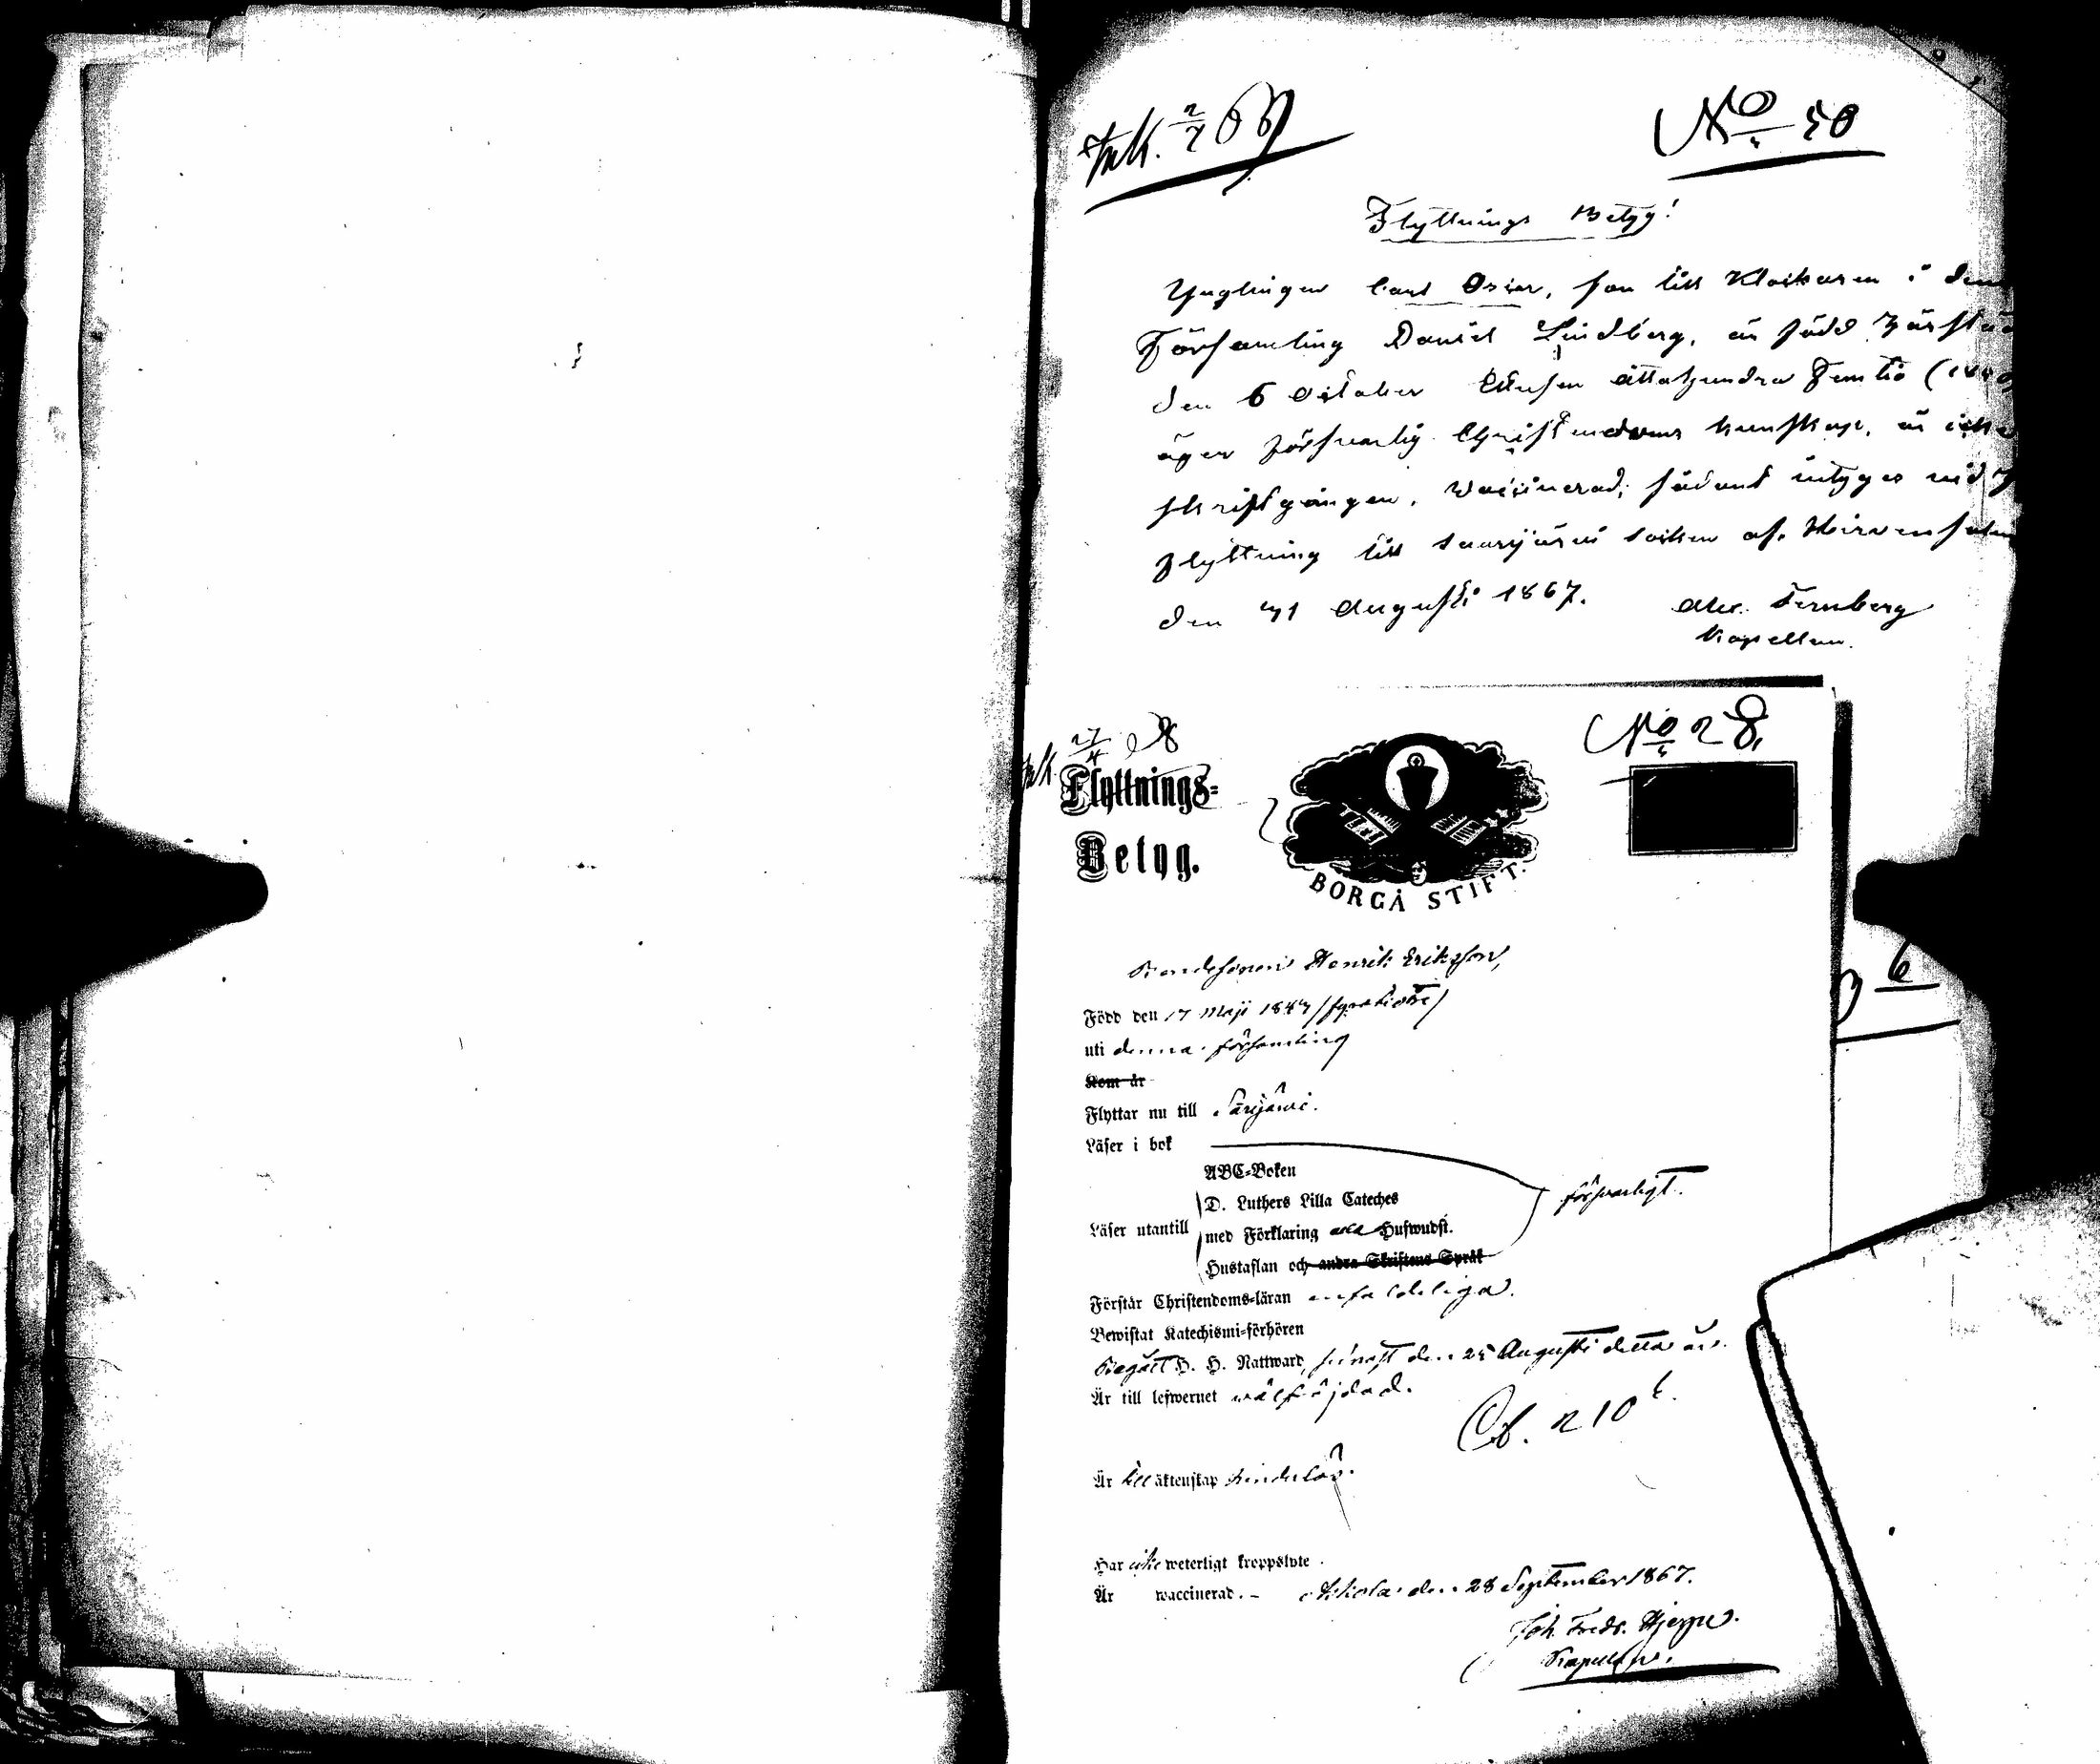 Ink. 2/7 69
No 50
Flyttnings Betyg!
Ynglingen Carl Oscar, son till Klockaren i denna
Församling Daniel Lindberg, är född härstädes
den 6 October Ettusen åttahundra Femtio (1850)
äger försvarlig Christendoms kunskap, är icke
skriftgången, Waccinerad; sådant intygas vid
flyttning till Saarijärvi Socken af. Hirvensalmi
den 31 Augusti 1867. Alex. Fernberg
Kapellan.
Ink. 27/4 68
No 28,
Flyttnings-
Betyg.
BORGÅ STIFT.
Bondesonen Henrik Eriksson,
Född den 17 Maji 1843 /fyratiotre/
uti denna församling
Kom år
Flyttar nu till Sarijärvi.
Läser i bok
ABC-Boken
D. Luthers Lilla Cateches
Läser utantill med Förklaring och Huswudst. försvarligt.
Hustaflan och andra Skriftens Språk
Förstår Christendoms-läran enfaldeliga.
Bewistat Katechismi-förhören
Begått H. H. Nattward, senast den 25 Augusti detta år.
Är till lefwernet wälfräjdad.
Är till äktenskap hinderlös.
Har icke weterligt kroppslyte.
Är waccinerad. – den 28 September 1867.
Joh. Fredr. Hjerpe.
Kapellan.